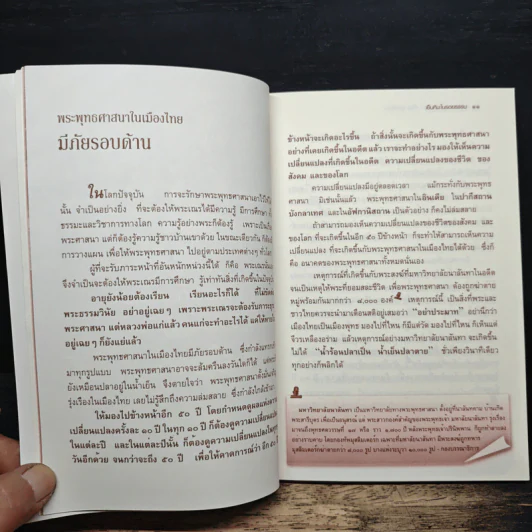 พระพุทธศาสนาในเมืองไทย
มีภัยรอบด้าน
ในโลกปัจจุบัน การจะรักษาพระพุทธศาสนาเอาไว้ให้ได้
นั้น จำเป็นอย่างยิ่ง ที่จะต้องให้พระเณรได้มีความรู้ มีการศึกษา
ธรรมะและวิชาการทางโลก ความรู้อย่างพระก็ต้องรู้ เพราะเป็น
พระศาสนา แต่ก็ต้องรู้ความรู้ชาวบ้านเขาด้วย ในขณะเดียวกัน ก็ต้อง
การวางแผน เพื่อให้พระพุทธศาสนา ไปอยู่ตามประเทศต่างๆ
ผู้ที่จะรับภาระหน้าที่อันหนักหน่วงนี้ได้ ก็คือ พระเณร
จึงจำเป็นจะต้องให้พระเณรมีการศึกษา รู้เท่าทันสิ่งที่เกิดขึ้นใน
อายุยังน้อยต้องเรียน เรียนอะไรก็ได้ ที่ไม่ขัด
พระธรรมวินัย อย่าอยู่เฉยๆ เพราะพระเณรจะต้องรับภาระ
พระศาสนา แต่หลวงพ่อแก่แล้ว คนแก่จะทำอะไรได้ แต่ให้
อยู่เฉยๆ ก็ยังแย่แล้ว
พระพุทธศาสนาในเมืองไทยมีภัยรอบด้าน ซึ่งกำลัง
มาทุกรูปแบบ พระพุทธศาสนาอาจจะล้มครืนลงวันใดก็ได้ แต่
ยังเหมือนปลาอยู่ในน้ำเย็น จึงตายใจว่า พระพุทธศาสนาตั้งมั่น
รุ่งเรืองในเมืองไทย เลยไม่รู้สึกถึงความล่มสลาย ซึ่งกำลังใกล้เข้า
ให้มองไปข้างหน้าอีก ๕๐ ปี โดยกำหนดดูผล
เปลี่ยนแปลงครั้งละ ๑๐ ปี ในทุก ๑๐ ปี ก็ต้องดูความเปลี่ยน
ในแต่ละปี และในแต่ละปีนั้น ก็ต้องดูความเปลี่ยนแปลงใน
วันอีกด้วย จนกว่าจะถึง ๕๐ ปี เพื่อให้คาดการณ์ว่า อีก ๕๐ ปี
๑๑
ข้างหน้าจะเกิดอะไรขึ้น ถ้าสิ่งนั้นจะเกิดขึ้นกับพระพุทธศาสนา
อย่างที่เคยเกิดขึ้นในอดีตแล้ว เราจะทำอย่างไร มองให้เห็นความ
เปลี่ยนแปลงที่เกิดขึ้นในอดีต ความเปลี่ยนแปลงของชีวิต ของ
สังคม และของโลก
ความเปลี่ยนแปลงมีอยู่ตลอดเวลา แม้กระทั่งกับพระพุทธ
ศาสนา มิเช่นนั้นแล้ว พระพุทธศาสนาในอินเดีย ในปากีสถาน
บังกลาเทศ และในอัฟกานิสถาน เป็นตัวอย่าง ก็คงไม่ล่มสลาย
ถ้าสามารถมองเห็นความเปลี่ยนแปลงของชีวิตของสังคม และ
ของโลก ที่จะเกิดขึ้นในอีก ๕๐ ปีข้างหน้า ก็จะทำให้สามารถเห็นความ
เปลี่ยนแปลงที่จะเกิดขึ้นกับพระพุทธศาสนาในเมืองไทยได้ด้วย ซึ่งก็
คือ อนาคตของพระพุทธศาสนาทั้งหมดนั่นเอง
เหตุการณ์ที่เกิดขึ้นกับพระสงฆ์ที่มหาวิทยาลัยนาลันทาในอดีต
จนเป็นเหตุให้พระที่ยอมสละชีวิต เพื่อพระพุทธศาสนา ต้องถูกฆ่าตาย
หมู่พร้อมกันมากกว่า ๘,๐๐๐ องค์ เหตุการณ์นี้ เป็นสิ่งที่พระและ
ชาวไทยควรจะนำมาเตือนสติอยู่เสมอว่า “อย่าประมาท” อย่านึกว่า
เมืองไทยเป็นเมืองพุทธ มองไปที่ไหน ก็มีแต่วัด มองไปที่ไหน ก็เห็นแต่
จีวรเหลืองอร่าม แล้วเหตุการณ์อย่างมหาวิทยาลัยนาลันทา จะเกิดขึ้น
ไม่ได้ “น้ำร้อนปลาเป็น น้ำเย็นปลาตาย” ชั่วเพียงวินาทีเดียว
ทุกอย่างก็พลิกได้
มหาวิทยาลัยนาลันทา เป็นมหาวิทยาลัยทางพระพุทธศาสนา ตั้งอยู่ที่นาลันทคาม บ้านเกิด